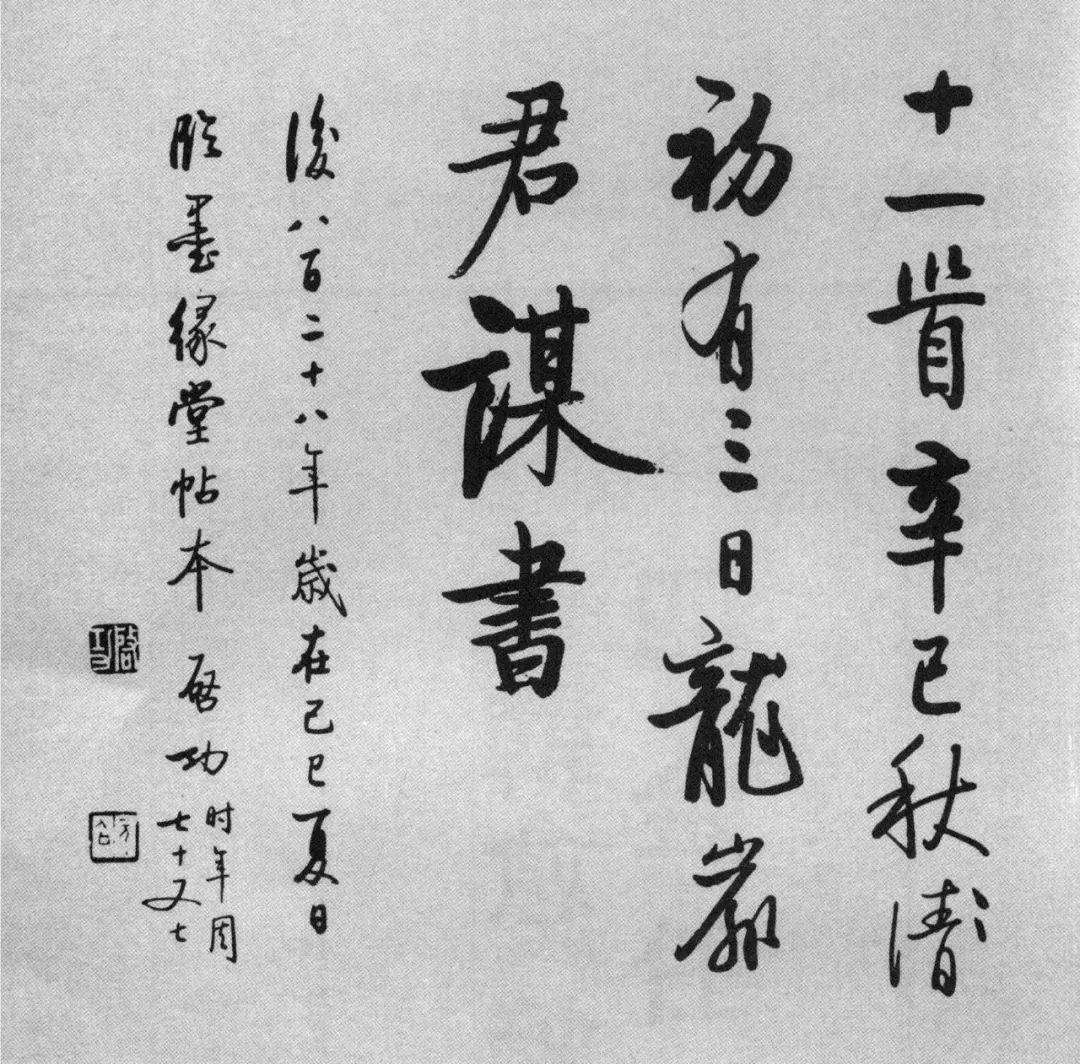 十一首辛巳秋清
初有三日龍巖
君謀書
後八百二十八年歲在己巳夏日
臨墨緣堂帖本 启功
时年周
七十又七
啓功